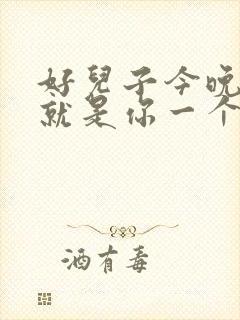 好兒子今晚
就是你一个
酒有毒